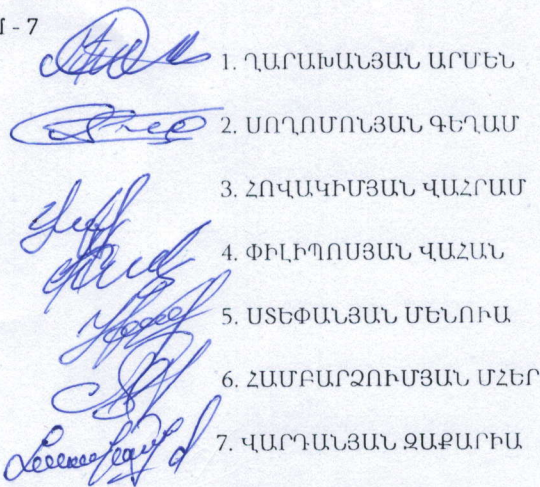 - 7
1. ՂԱՐԱԽԱՆՅԱՆ ԱՐՄԵՆ
2. ՍՈՂՈՄՈՆՅԱՆ ԳԵՂԱՄ
3. ՀՈՎԱԿԻՄՅԱՆ ՎԱՀՐԱՄ
4. ՓԻԼԻՊՈՍՅԱՆ ՎԱՀԱՆ
5. ՍՏԵՓԱՆՅԱՆ ՄԵՆՈՒԱ
6. ՀԱՄԲԱՐՁՈՒՄՅԱՆ ՄՀԵՐ
7. ՎԱՐԴԱՆՅԱՆ ԶԱՔԱՐԻԱ